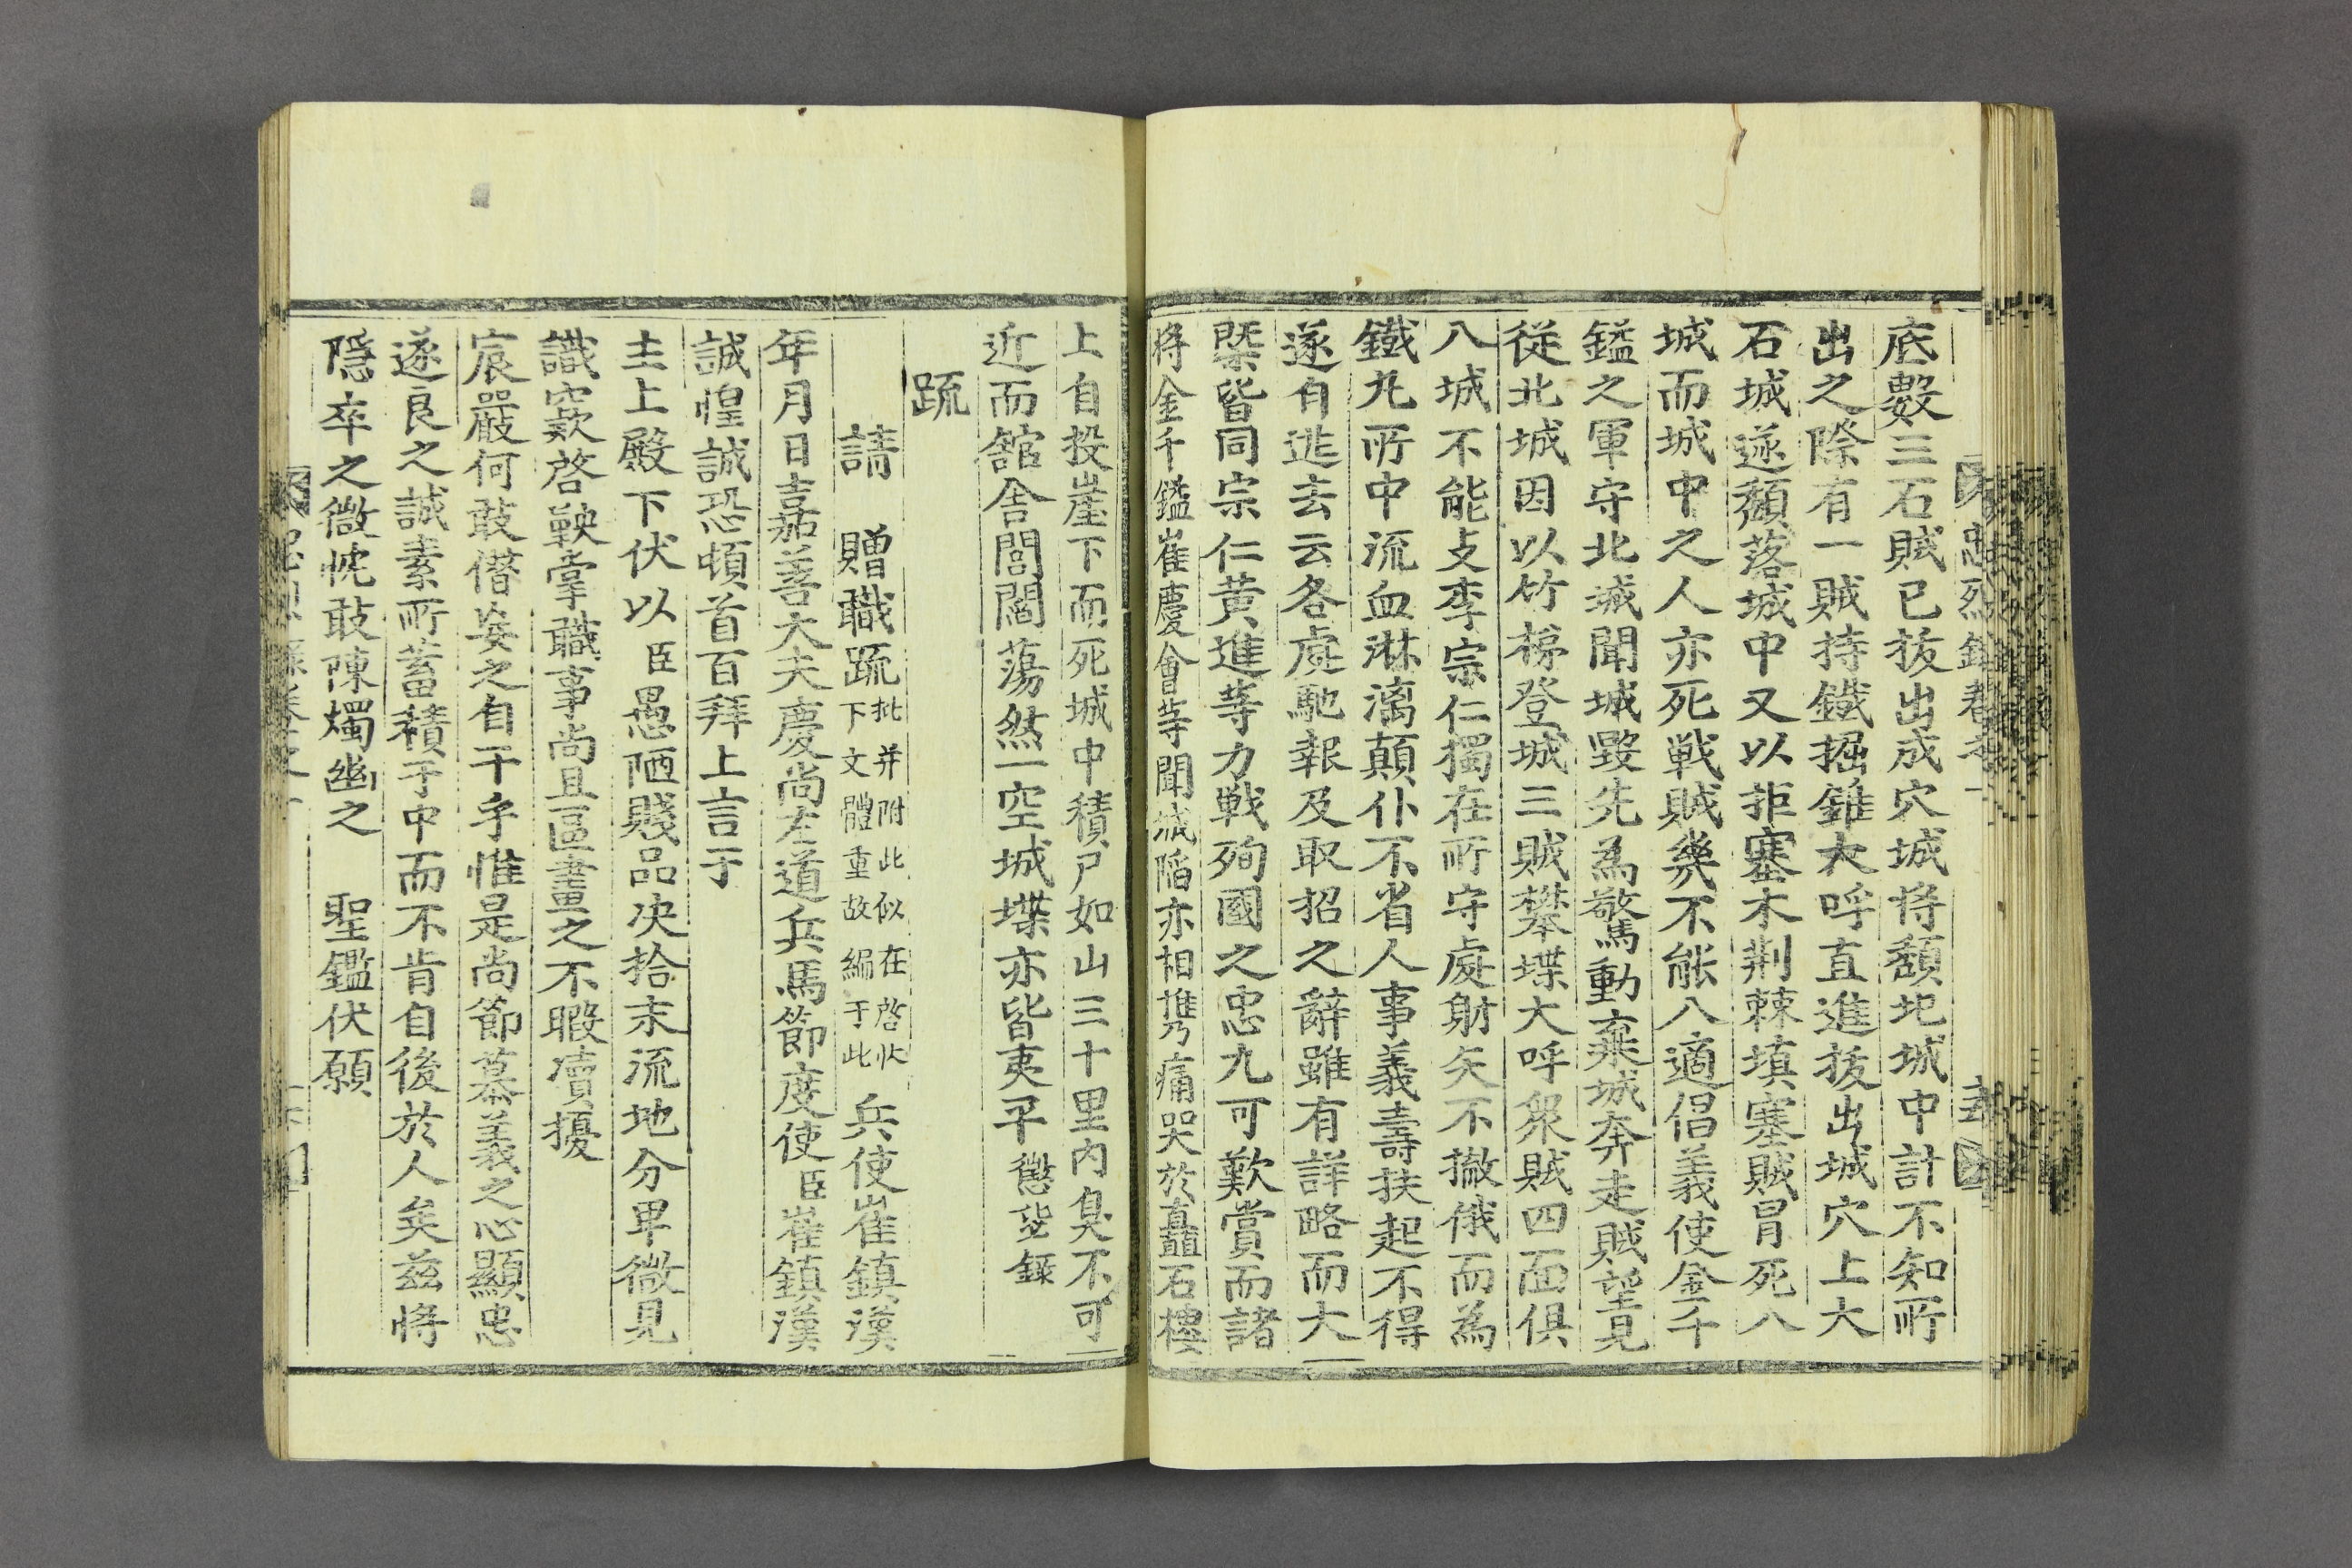 底數三石賊已拔出成穴城將頹圯城中計不知所
出之際有一賊持鐵掘錐大呼直進拔出城穴上大
石城遂頹落城中又以拒塞木荊棘塡塞賊冒死入
城而城中之人亦死戰賊幾不能入適倡義使金千
鎰之軍守北城聞城毀先為驚動棄城奔走賊望見
從北城因以竹梯登城三賊攀堞大呼衆賊四面俱
入城不能支李宗仁獨在所守處射矢不撤俄而為
鐵丸所中流血淋漓顛仆不省人事義壽扶起不得
遂自逃去云各處馳報及取招之辭雖有詳略而大
槩皆同宗仁黃進等力戰殉國之忠尤可歎賞而諸
將金千鎰崔慶會等聞城陷亦相携痛哭於矗石樓
上自投崖下而死城中積尸如山三十里內臭不可
近而舘舍閭閻蕩然一空城堞亦皆夷平 懲毖錄
疏
請 贈職疏 批并附此似在啓狀下文體重故編于此 兵使崔鎭漢
年月日嘉善大夫慶尙左道兵馬節度使臣崔鎭漢
誠惶誠恐頓首百拜上言于
主上殿下伏以臣愚陋賤品决拾末流地分卑微見
識窾啓鞅掌職事尙且區畫之不暇凟擾
宸嚴何敢僭妄之自干乎惟是尙節慕義之心顯忠
遂良之誠素所蓄積于中而不肯自後於人矣茲將
隱卒之微忱敢陳燭幽之 聖鑑伏願